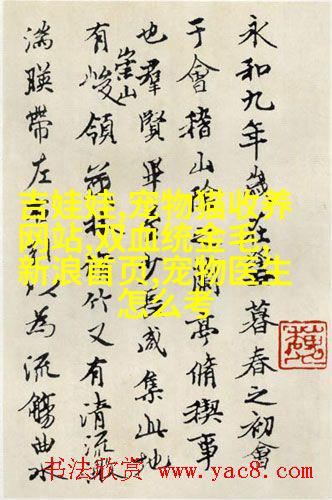 永和九年歲在暮春之初會
于會稽山陰之蘭亭脩禊事
也羣賢畢至少長咸集此地
有崇山峻領茂林脩竹又有清流激
湍暎帶左右引以為流觴曲水
吉娃娃,宠物猫收养
网站,双血统金毛,
新浪首页,宠物医生
怎么考
书法欣赏 www.yac8.com